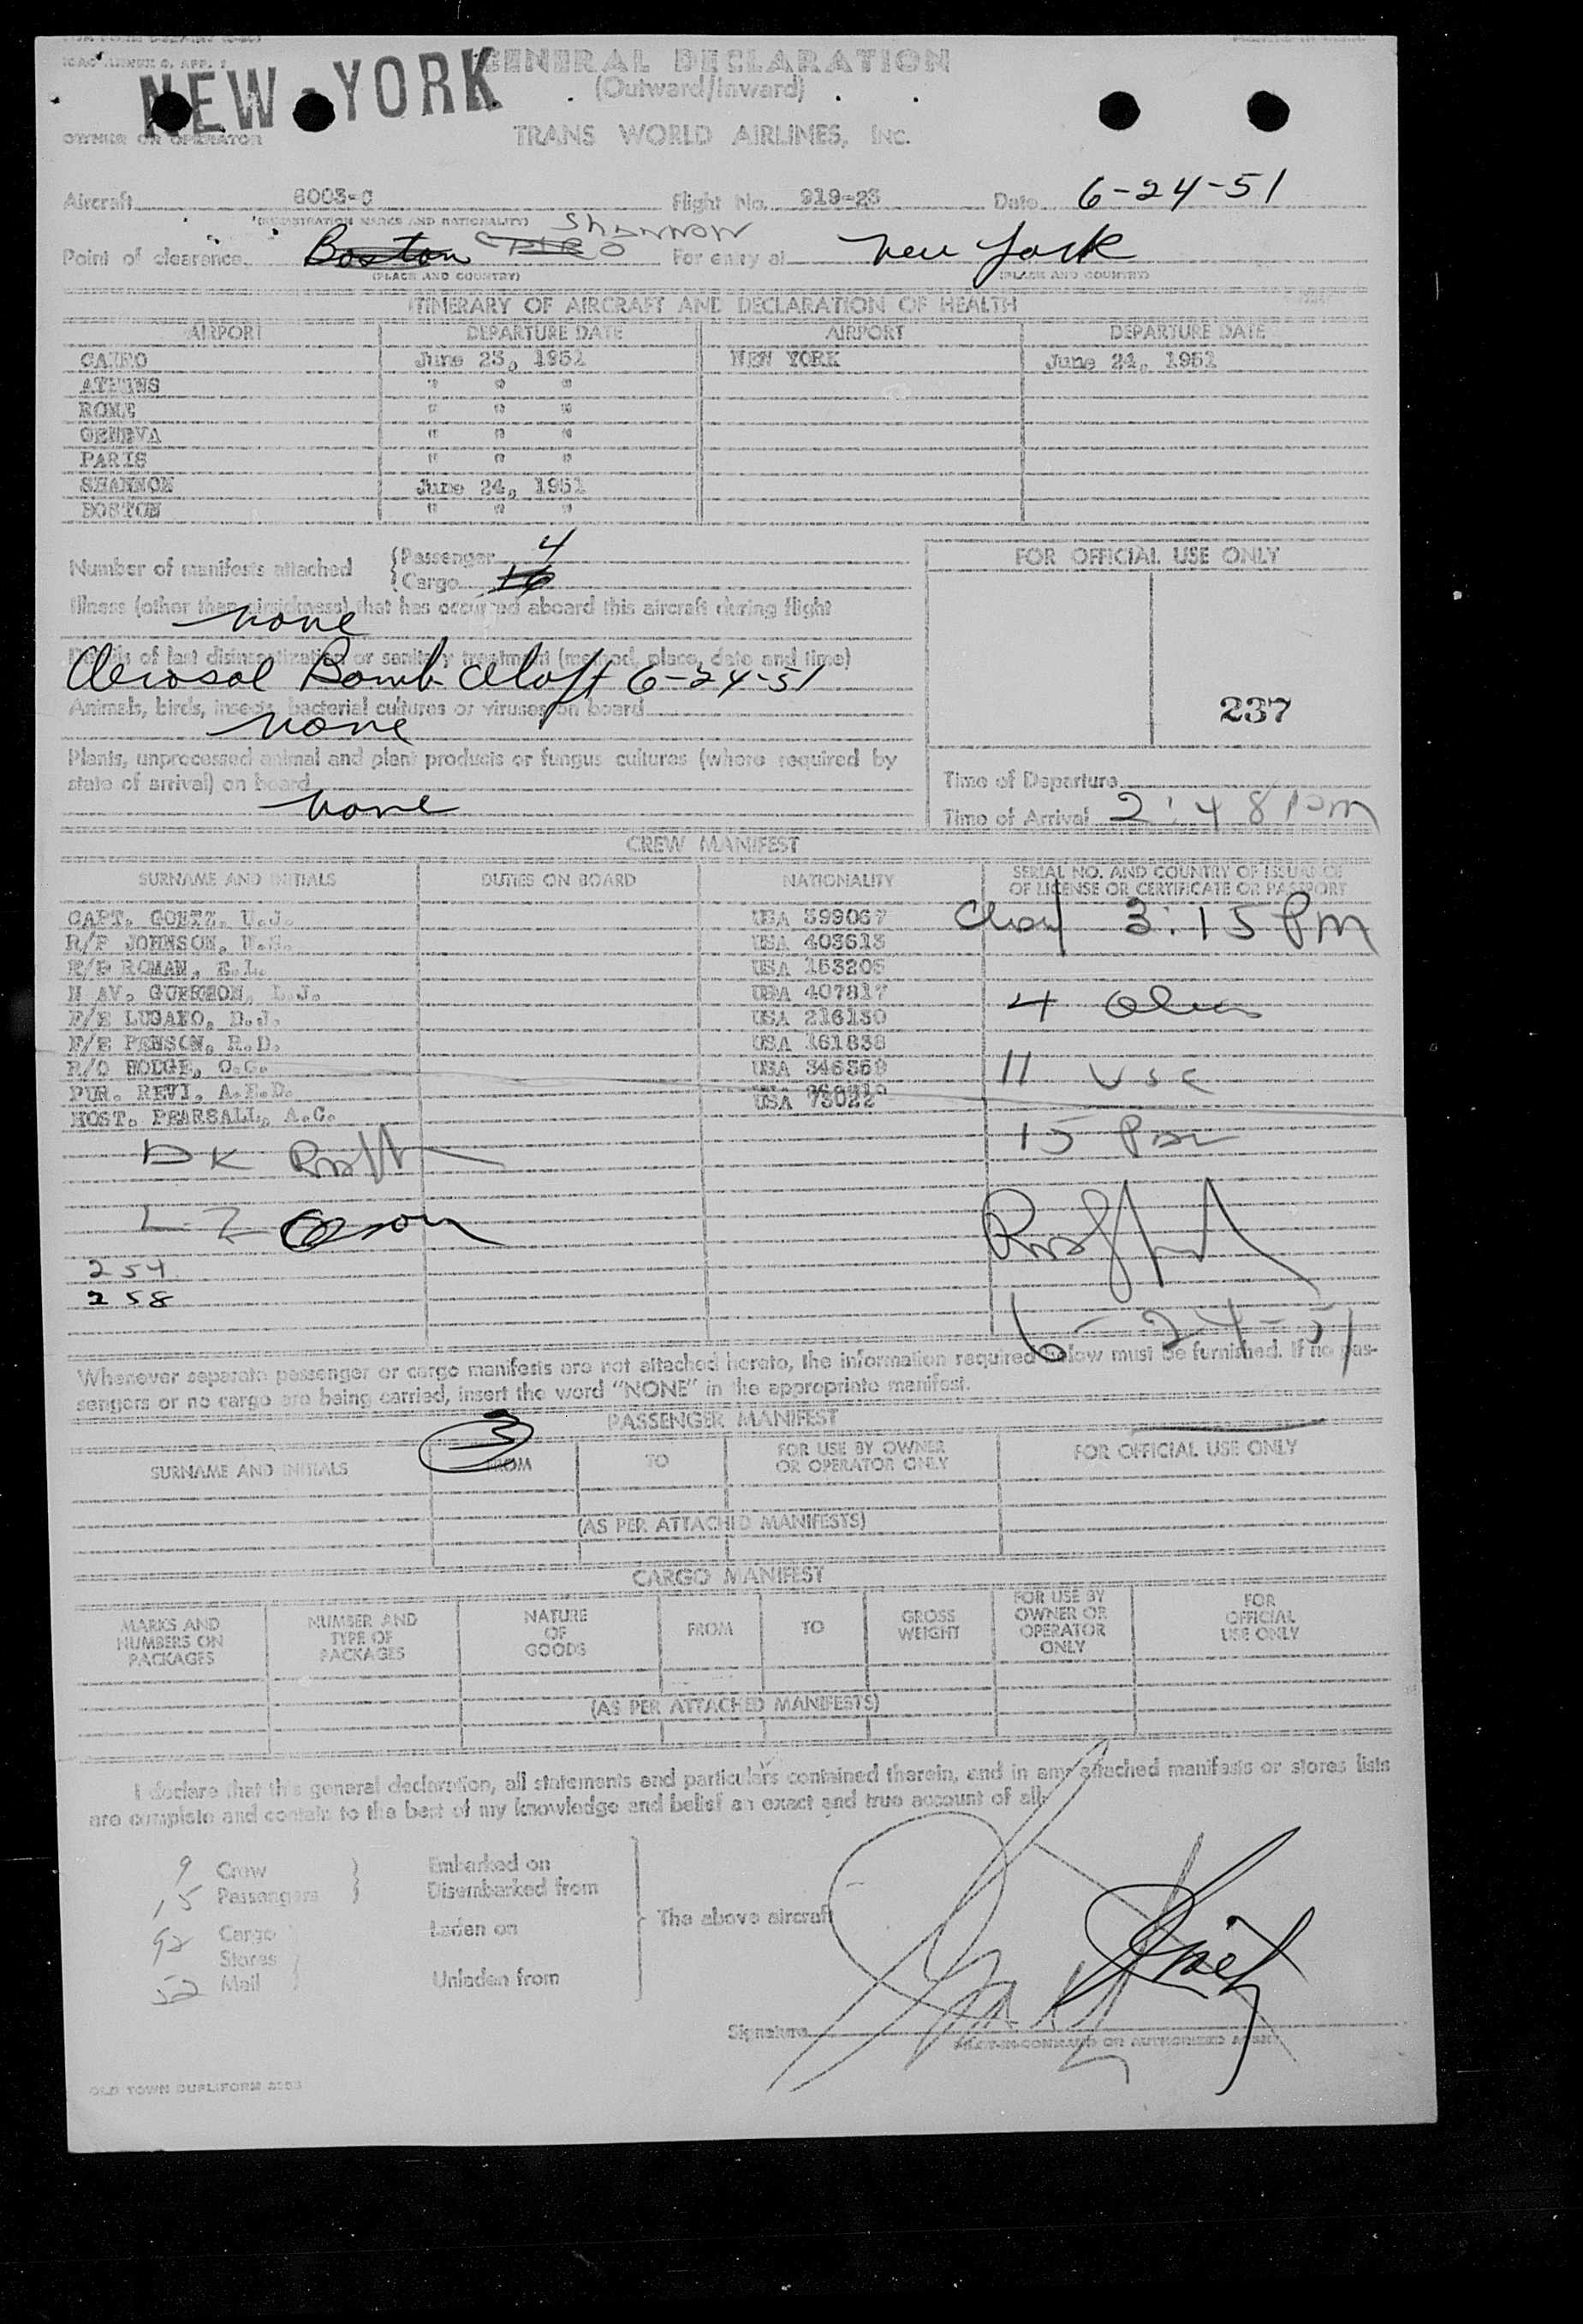 ICAO ANNEX 9, APP. 1
NEW YORK
GENERAL DECLARATION
(Outward/Inward)
OWNER OR OPERATOR TRANS WORLD AIRLINES, Inc.
Aircraft 6003-C Flight No. 919-23 Date 6-24-51
(REGISTRATION MARKS AND NATIONALITY)
Point of clearance Boston CAIRO SHANNON For entry at New York
(PLACE AND COUNTRY) (PLACE AND COUNTRY)
ITINERARY OF AIRCRAFT AND DECLARATION OF HEALTH
AIRPORT DEPARTURE DATE AIRPORT DEPARTURE DATE
CAIRO June 23, 1951 NEW YORK June 24, 1951
ATHENS " " "
ROME " " "
GENEVA " " "
PARIS " " "
SHANNON June 24, 1951
BOSTON " " "
Number of manifests attached
Passenger 4
Cargo 16
FOR OFFICIAL USE ONLY
Illness (other than airsickness) that has occurred aboard this aircraft during flight
none
Details of last disinsectization or sanitary treatment (method, place, date and time)
Aerosol Bomb Aloft 6-24-51
Animals, birds, insects, bacterial cultures or viruses on board
none
237
Plants, unprocessed animal and plant products or fungus cultures (where required by
state of arrival) on board
none
Time of Departure
Time of Arrival 2:48 PM
CREW MANIFEST
SURNAME AND INITIALS DUTIES ON BOARD NATIONALITY SERIAL NO. AND COUNTRY OF ISSUANCE
OF LICENSE OR CERTIFICATE OR PASSPORT
CAPT. GOETZ, U.J. USA 399067 3:15 PM
R/P JOHNSON, USA 403613
ROMAN, E.L. USA 153205
N AV. L.J. USA 407817 4
F/E D.J. USA 216130
F/E PENSON, R.D. USA 161838
R/O HODGE, O.C. USA 346369 11 USC
PUR. REVI, A.F.D.
HOST. PEARSALL, A.C. USA 73022
15
D K
L Z
254
258
6-24-51
Whenever separate passenger or cargo manifests are not attached hereto, the information required below must be furnished. If no pas-
sengers or no cargo are being carried, insert the word "NONE" in the appropriate manifest.
3
PASSENGER MANIFEST
SURNAME AND INITIALS FROM TO FOR USE BY OWNER
OR OPERATOR ONLY FOR OFFICIAL USE ONLY
(AS PER ATTACHED MANIFESTS)
CARGO MANIFEST
MARKS AND
NUMBERS ON
PACKAGES
NUMBER AND
TYPE OF
PACKAGES
NATURE
OF
GOODS
FROM
TO
GROSS
WEIGHT
FOR USE BY
OWNER OR
OPERATOR
ONLY
FOR
OFFICIAL
USE ONLY
(AS PER ATTACHED MANIFESTS)
I declare that this general declaration, all statements and particulars contained therein, and in any attached manifests or stores lists
are complete and contain to the best of my knowledge and belief an exact and true account of all:
9 Crew Embarked on
15 Passengers Disembarked from
The above aircraft
92 Cargo Laden on
Stores
52 Mail Unladen from
Signature
PILOT-IN-COMMAND OR AUTHORIZED AGENT
OLD TOWN DUPLIFORM